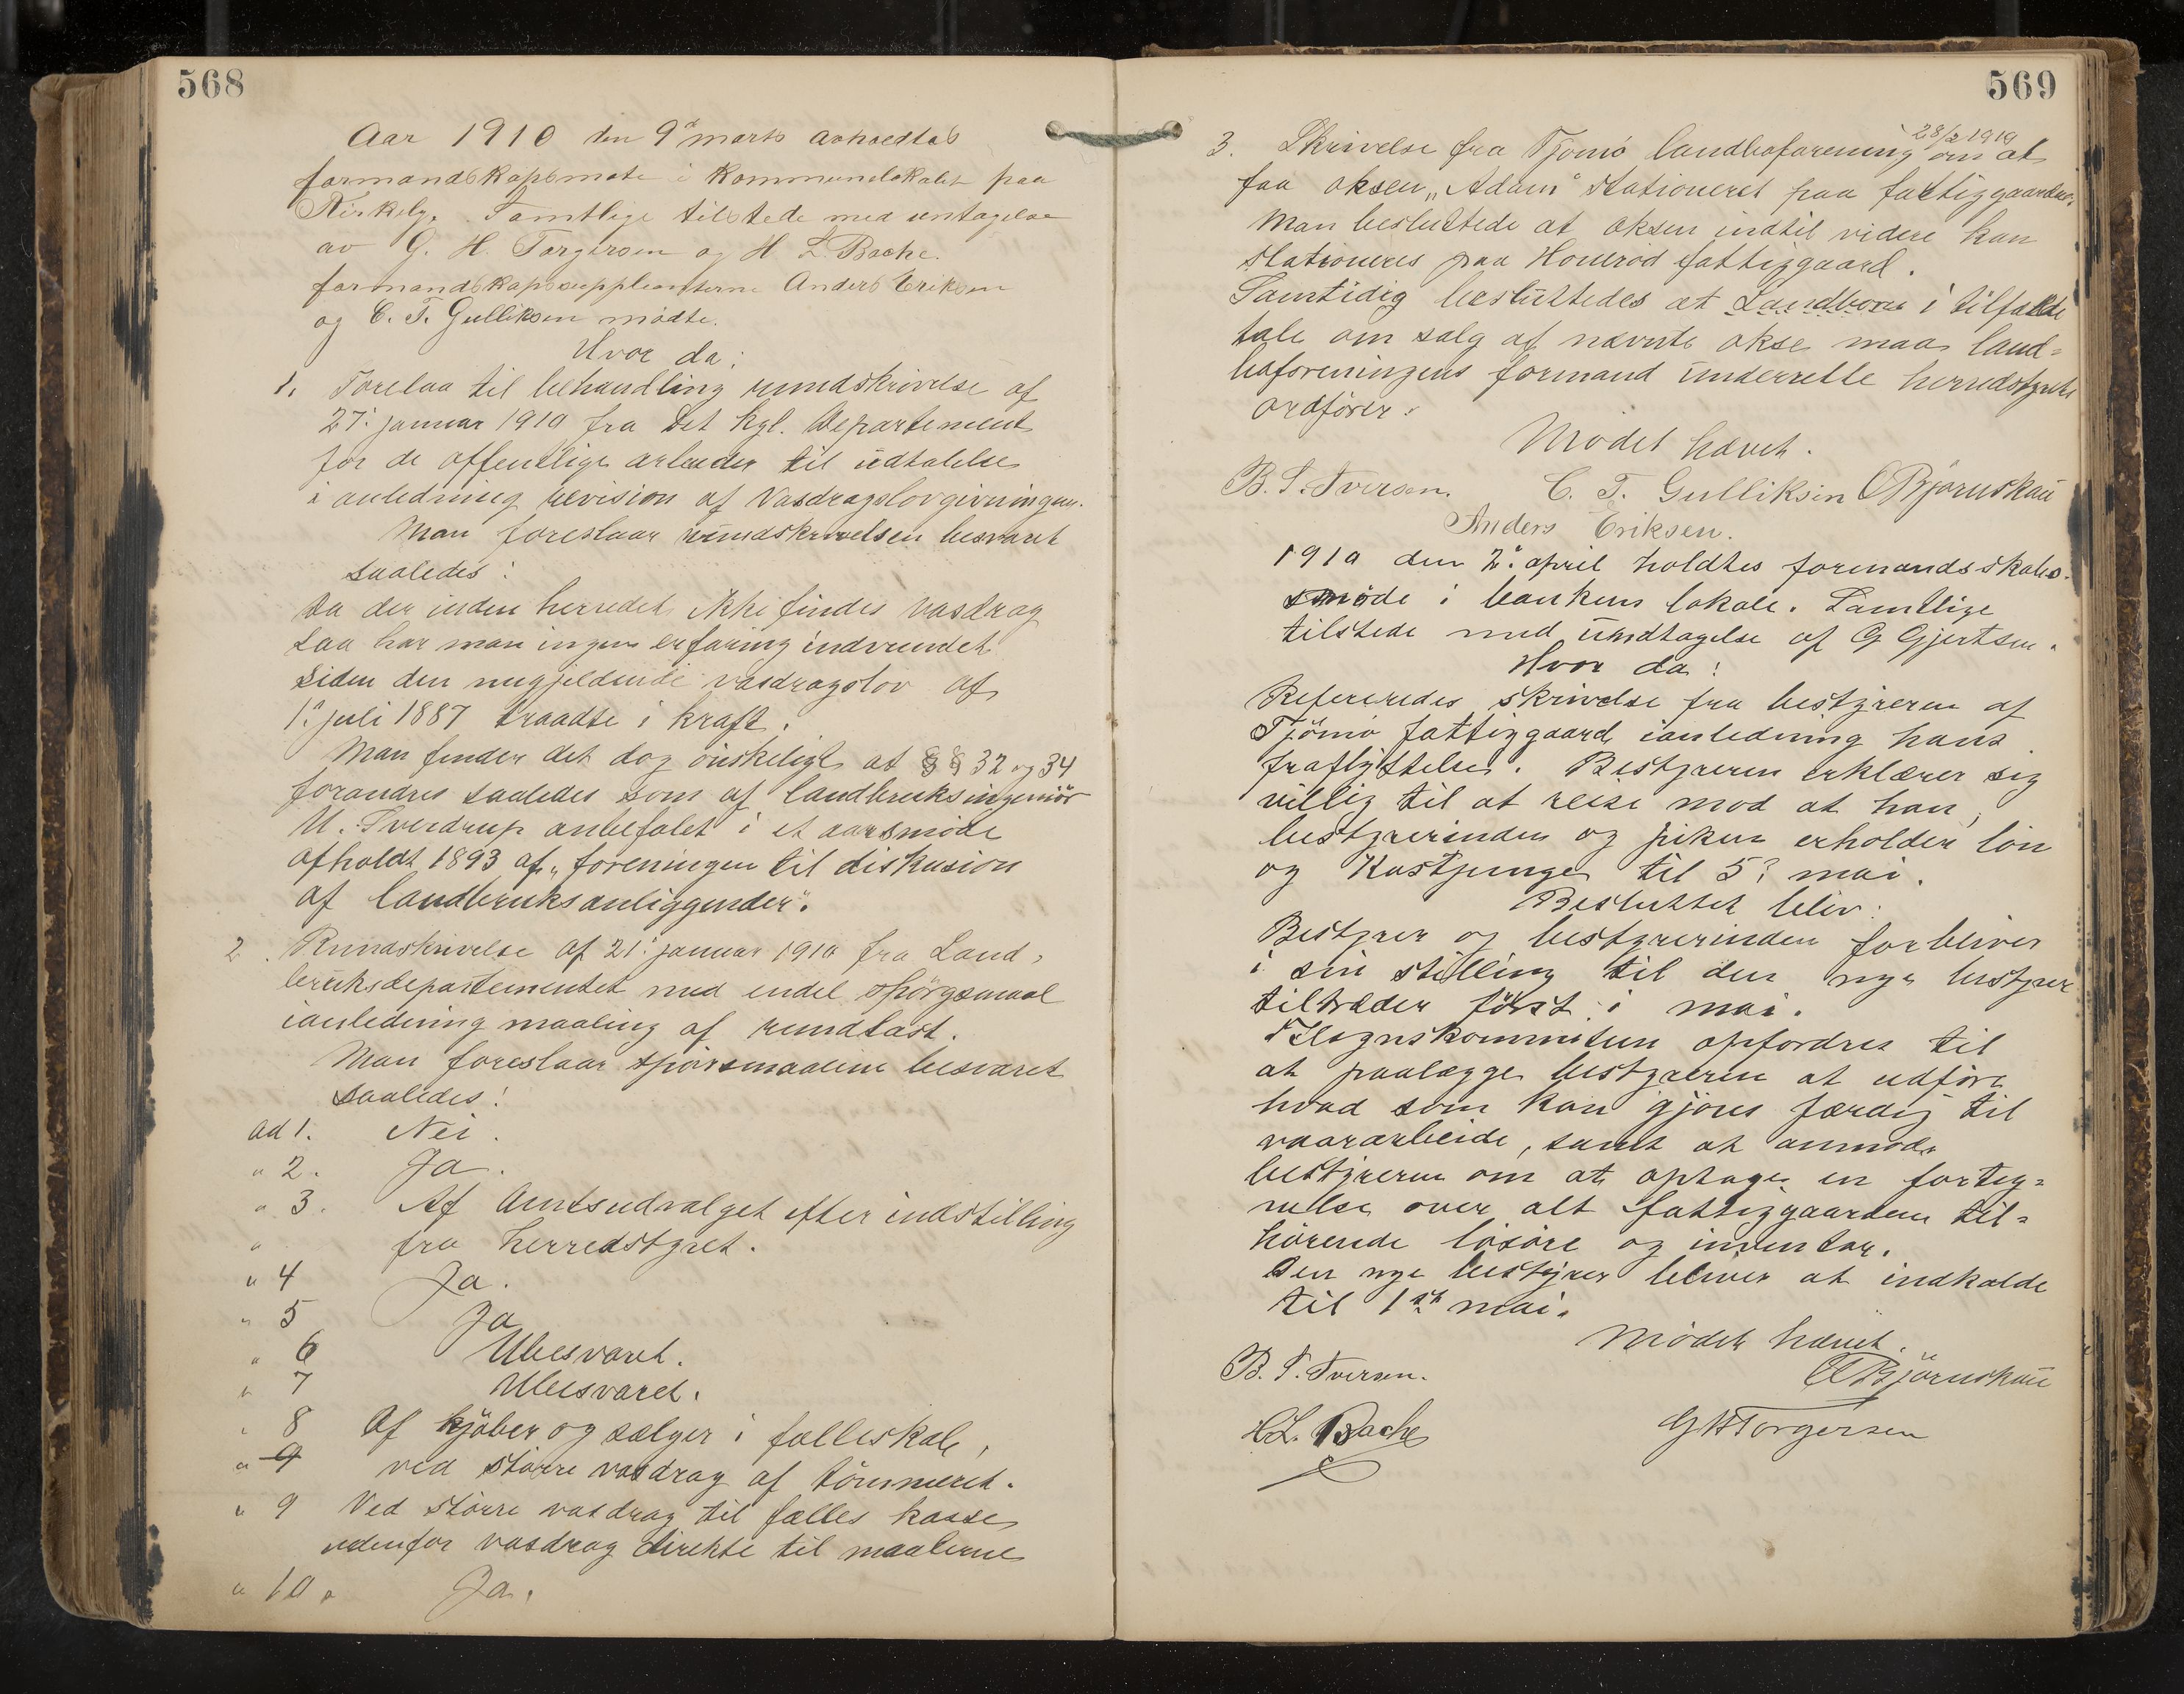 568
Aar 1910 den 9de marts avhoedtes
formandskapsmøte i Kommunelokalet paa
Kirkelg. Samtlige tilstede med untagelse
av G. H. Torgersen og H L Bache.
formandskapssuppleanterne Anders Eriksen
og C. T. Gulliksen mødte.
Hvor da:
1. Forelaa til behandling rundskrivelse af
27: januar 1910 fra det kgl. Departement
for de offentlige arbeider til udtalelse
i anledning revision af Vasdragslovgivningen.
Man foreslaar rundskrivelsen besvaret
saaledes:
Da der inden herredet ikke findes vasdrag
saa har man ingen erfaring indvundet
siden den nugjeldende vasdragslov af
1: juli 1887 traadte i kraft.
Man finder det dog ønskeligt at §§ 32 og 34
forandres saaledes som af landbruksingeniør
U. Sverdrup anbefalet i et aarsmøde
afholdt 1893 af „foreningen til diskusion
af landbruksanliggender“.
2. Rundskrivelse af 21: januar 1910 fra Land=
bruksdepartementet med endel spörgsmaal
ianledning maaling af rundlast.
Man foreslaar spörsmaalene besvaret
saaledes:
ad 1. Nei.
" 2. Ja.
" 3. Af Amtsudvalget efter indstilling
" fra herredstyret.
" 4 Ja.
" 5 Ja
" 6 Ubesvaret.
" 7 Ubesvaret.
" 8 Af kjøber og sælger i fælleskab,
" 9 ved større vasdrag af tömmeret.
" 9 Ved større vasdrag til fælles kasse
udenfor vasdrag direkte til maalerne
" 10. Ja.
569
28/2 1910
3. Skrivelse fra Tjømö landboforening om at
faa oksen „Adam“ stationeret paa fattiggaarden.
Man besluttede at oksen indtil videre kan
stationeres paa Honerød fattiggaard.
Samtidig besluttedes at Landboren i tilfælde
tale om salg af nævnte okse maa land=
boforeningens formand underrette herredstyrets
ordfører.
Mödet hævet.
B. S. Iversen. C. T. Gulliksen O Bjørnskau
Anders Eriksen.
1910 den 2: april holdtes formandsskabs-
møde i bankens lokale. Samtlige
tilstede med undtagelse af G Gjertsen.
Hvor da:
Refereredes skrivelse fra bestyreren af
Tjömö fattiggaard ianledning hans
fraflyttelse. Bestyreren erklærer sig
villig til at reise mod at han,
bestyrerinden og piken erholder lön
og Kostpenge til 5: mai.
Besluttet blev:
Bestyrer og bestyrerinden forbliver
i sin stilling til den nye bestyrer
tiltræder först i mai.
Tilsynskommiteen opfordres til
at paalægge bestyreren at udföre
hvad som kan gjöres færdig til
vaararbeide, samt at anmode
bestyreren om at optage en forteg=
nelse over alt fattiggaarden til=
hørende løsøre og inventar.
Den nye bestyrer bliver at indkalde
til 1ste mai.
Mödet hævet.
B. S. Iversen. O Bjørnskau
H L. Bache G H Torgersen